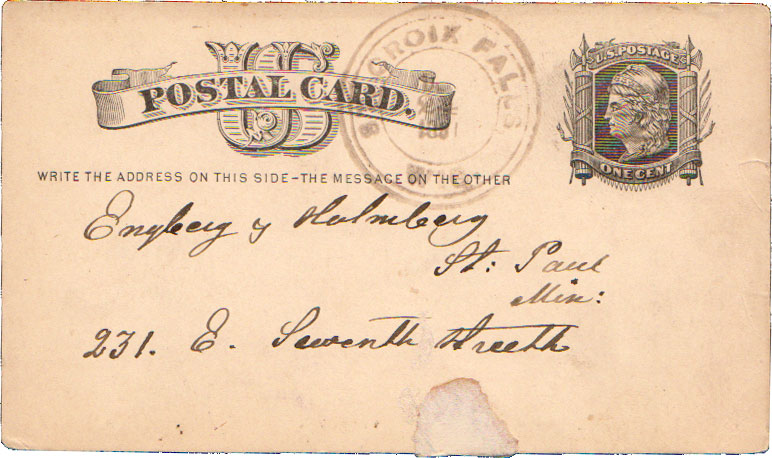 US
POSTAL CARD.
CROIX FALLS
1881
U.S. POSTAGE
ONE CENT
WRITE THE ADDRESS ON THIS SIDE-THE MESSAGE ON THE OTHER
Engberg y Holmberg
St: Paul
Min:
231. E. Sewenth Streeth